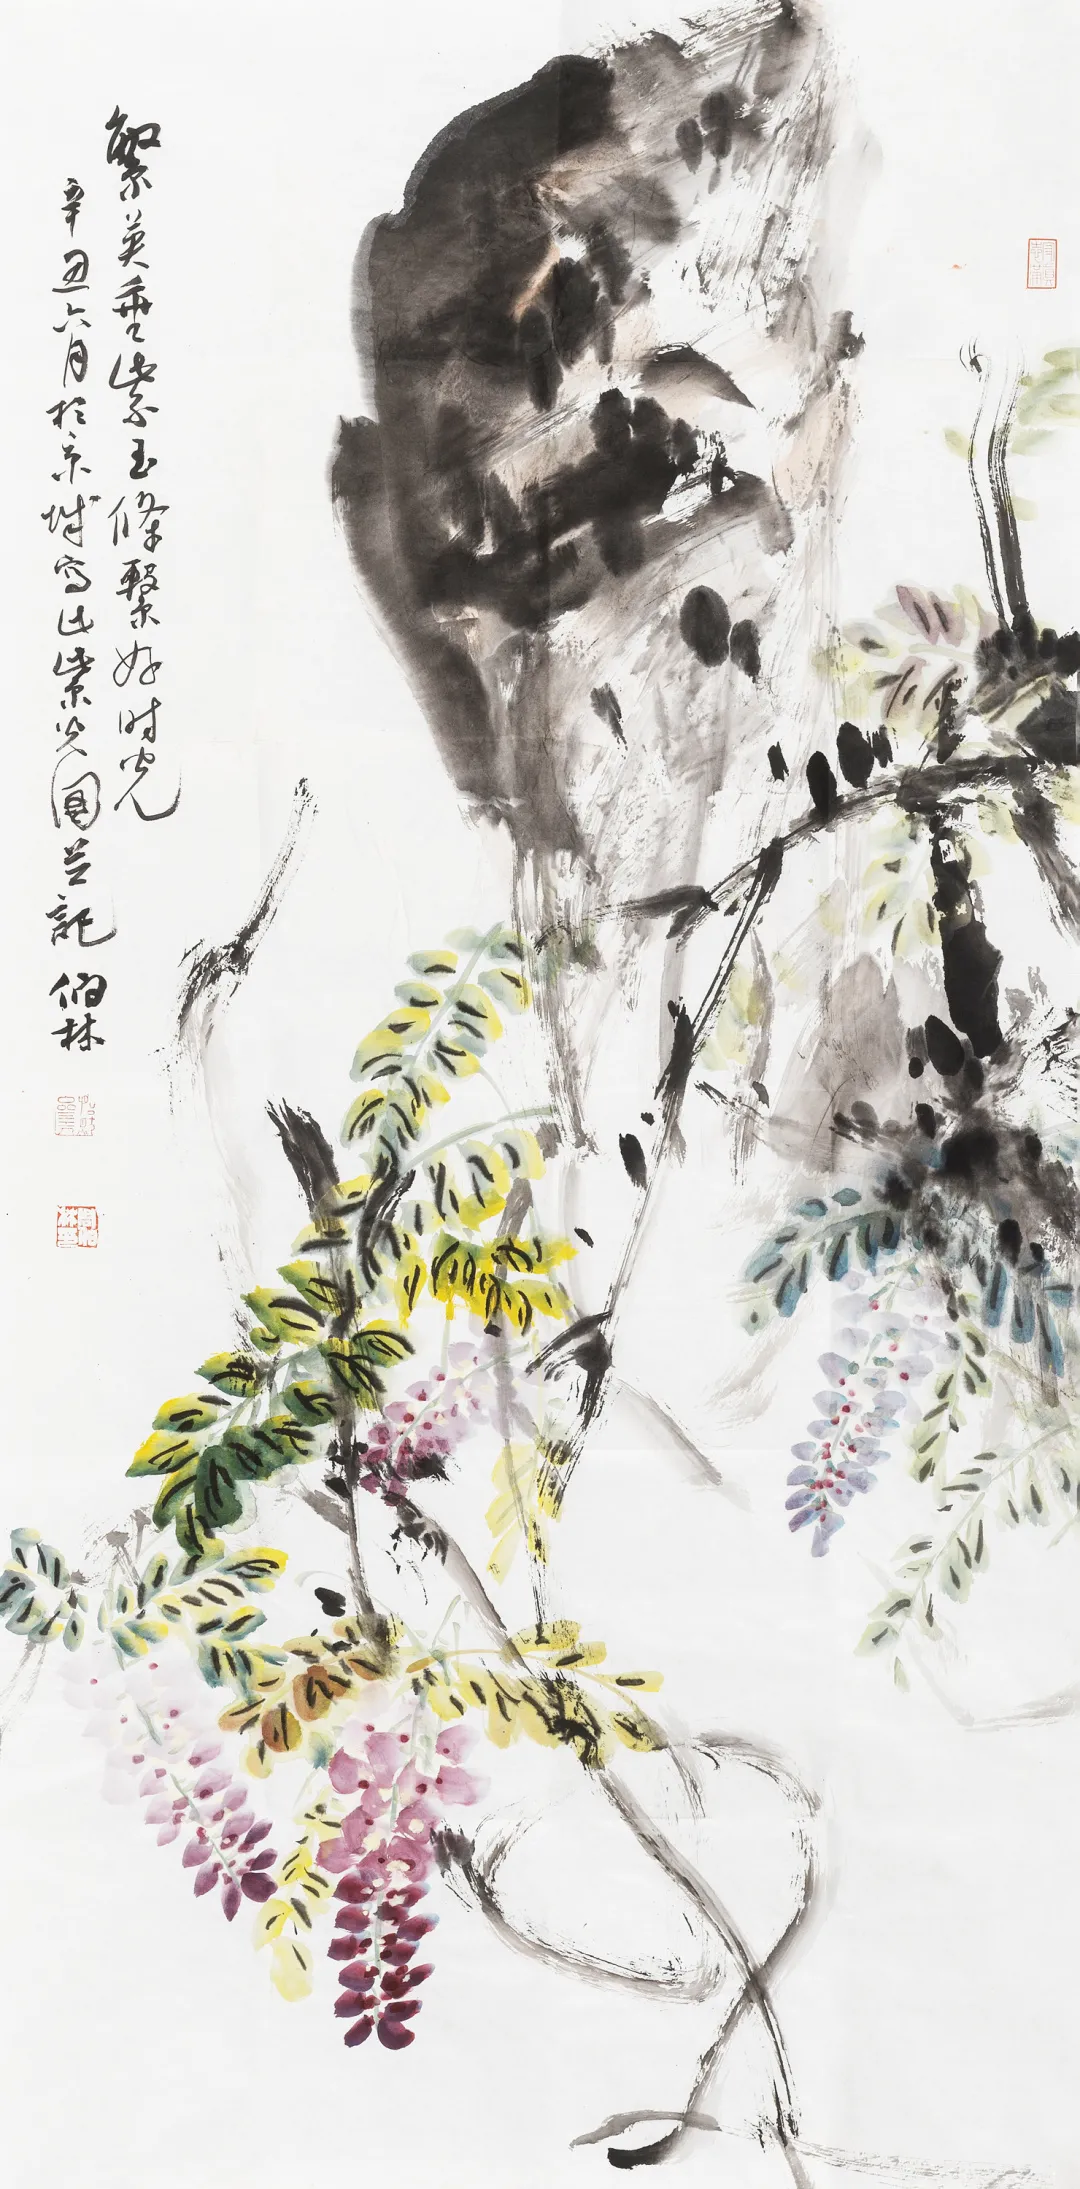 繁英垂紫玉條繫好时光
辛丑六月於京城寫此紫光圖並記 伯林